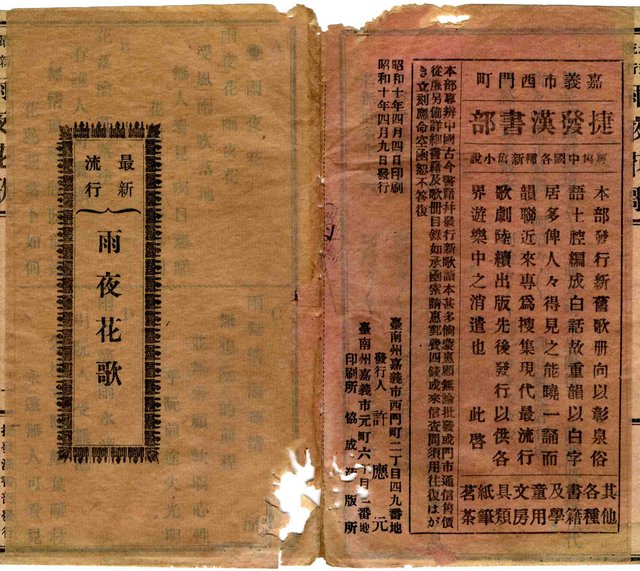 嘉義市西門町
捷發漢書部
中國各種新舊小說
本部發行新舊歌册向以彰泉俗
語土腔編成白話故重韻以白字
居多俾人々得見之能曉一誦而
韻聯近來專爲搜集現代最流行
歌劇陸續出版先後發行以供各
界遊樂中之消遣也 此啓
其他各種書籍及學童用文房具類紙筆茗茶
本部專辦中國古今書籍并發行新歌讀本甚多倘蒙惠顧無論批發或門市通信俱價
從廉另備詳細書籍及歌册目錄如承函索請惠郵費四錢或來信查問須用往復はが
き立刻應命空函恕不答復
昭和十年四月四日印刷
昭和十年四月九日發行
臺南州嘉義市西門町二丁目四九番地
發行人 許應元
臺南州嘉義市元町六丁目二番地
印刷所 協成活版所
最新
流行
雨夜花歌